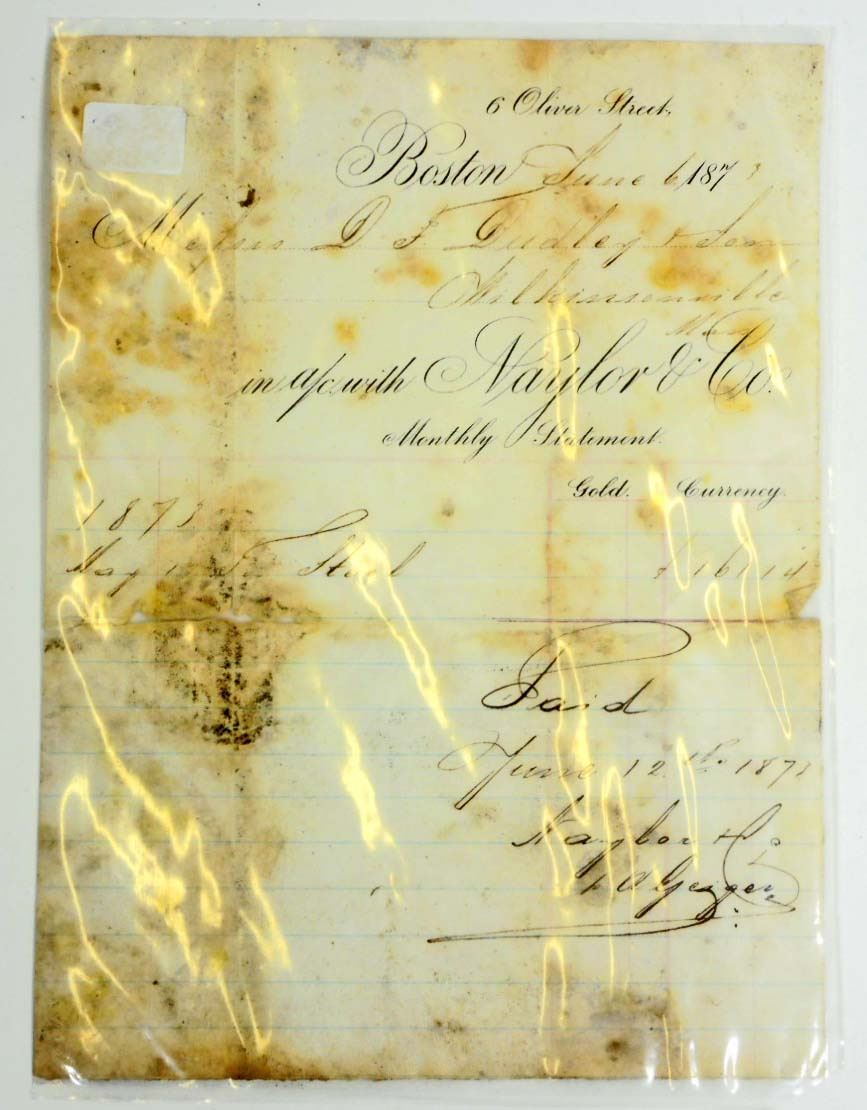 6 Oliver Street,
Boston June 6, 1873
Messrs D F Dudley & Son
Wilkinsonville
Mass
in a/c with Naylor & Co.
Monthly Statement.
Gold. Currency.
1873
May To Steel
Paid
June 12th 1873
Naylor & Co
Geiger